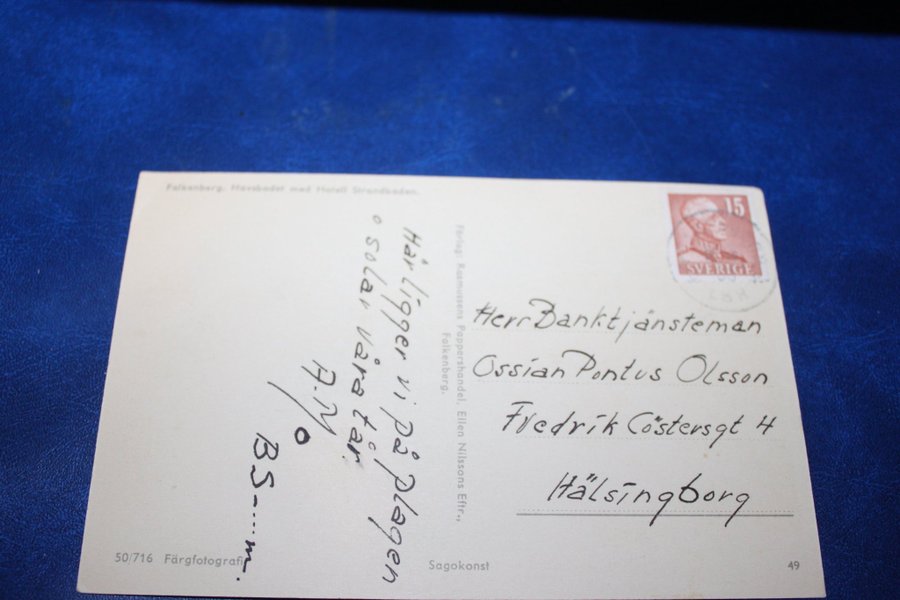 Falkenberg. Havsbadet med Hotell Strandbaden.
Här ligger vi på plagen
o solar våra tår.
A.N
o
BS-....m.
Förlag: Rasmussens Pappershandel, Ellen Nilssons Eftr.,
Falkenberg.
15
SVERIGE
Herr Banktjänsteman
Ossian Pontus Olsson
Fredrik Göstersgt 4
Hälsingborg
50/716 Färgfotografi
Sagokonst
49